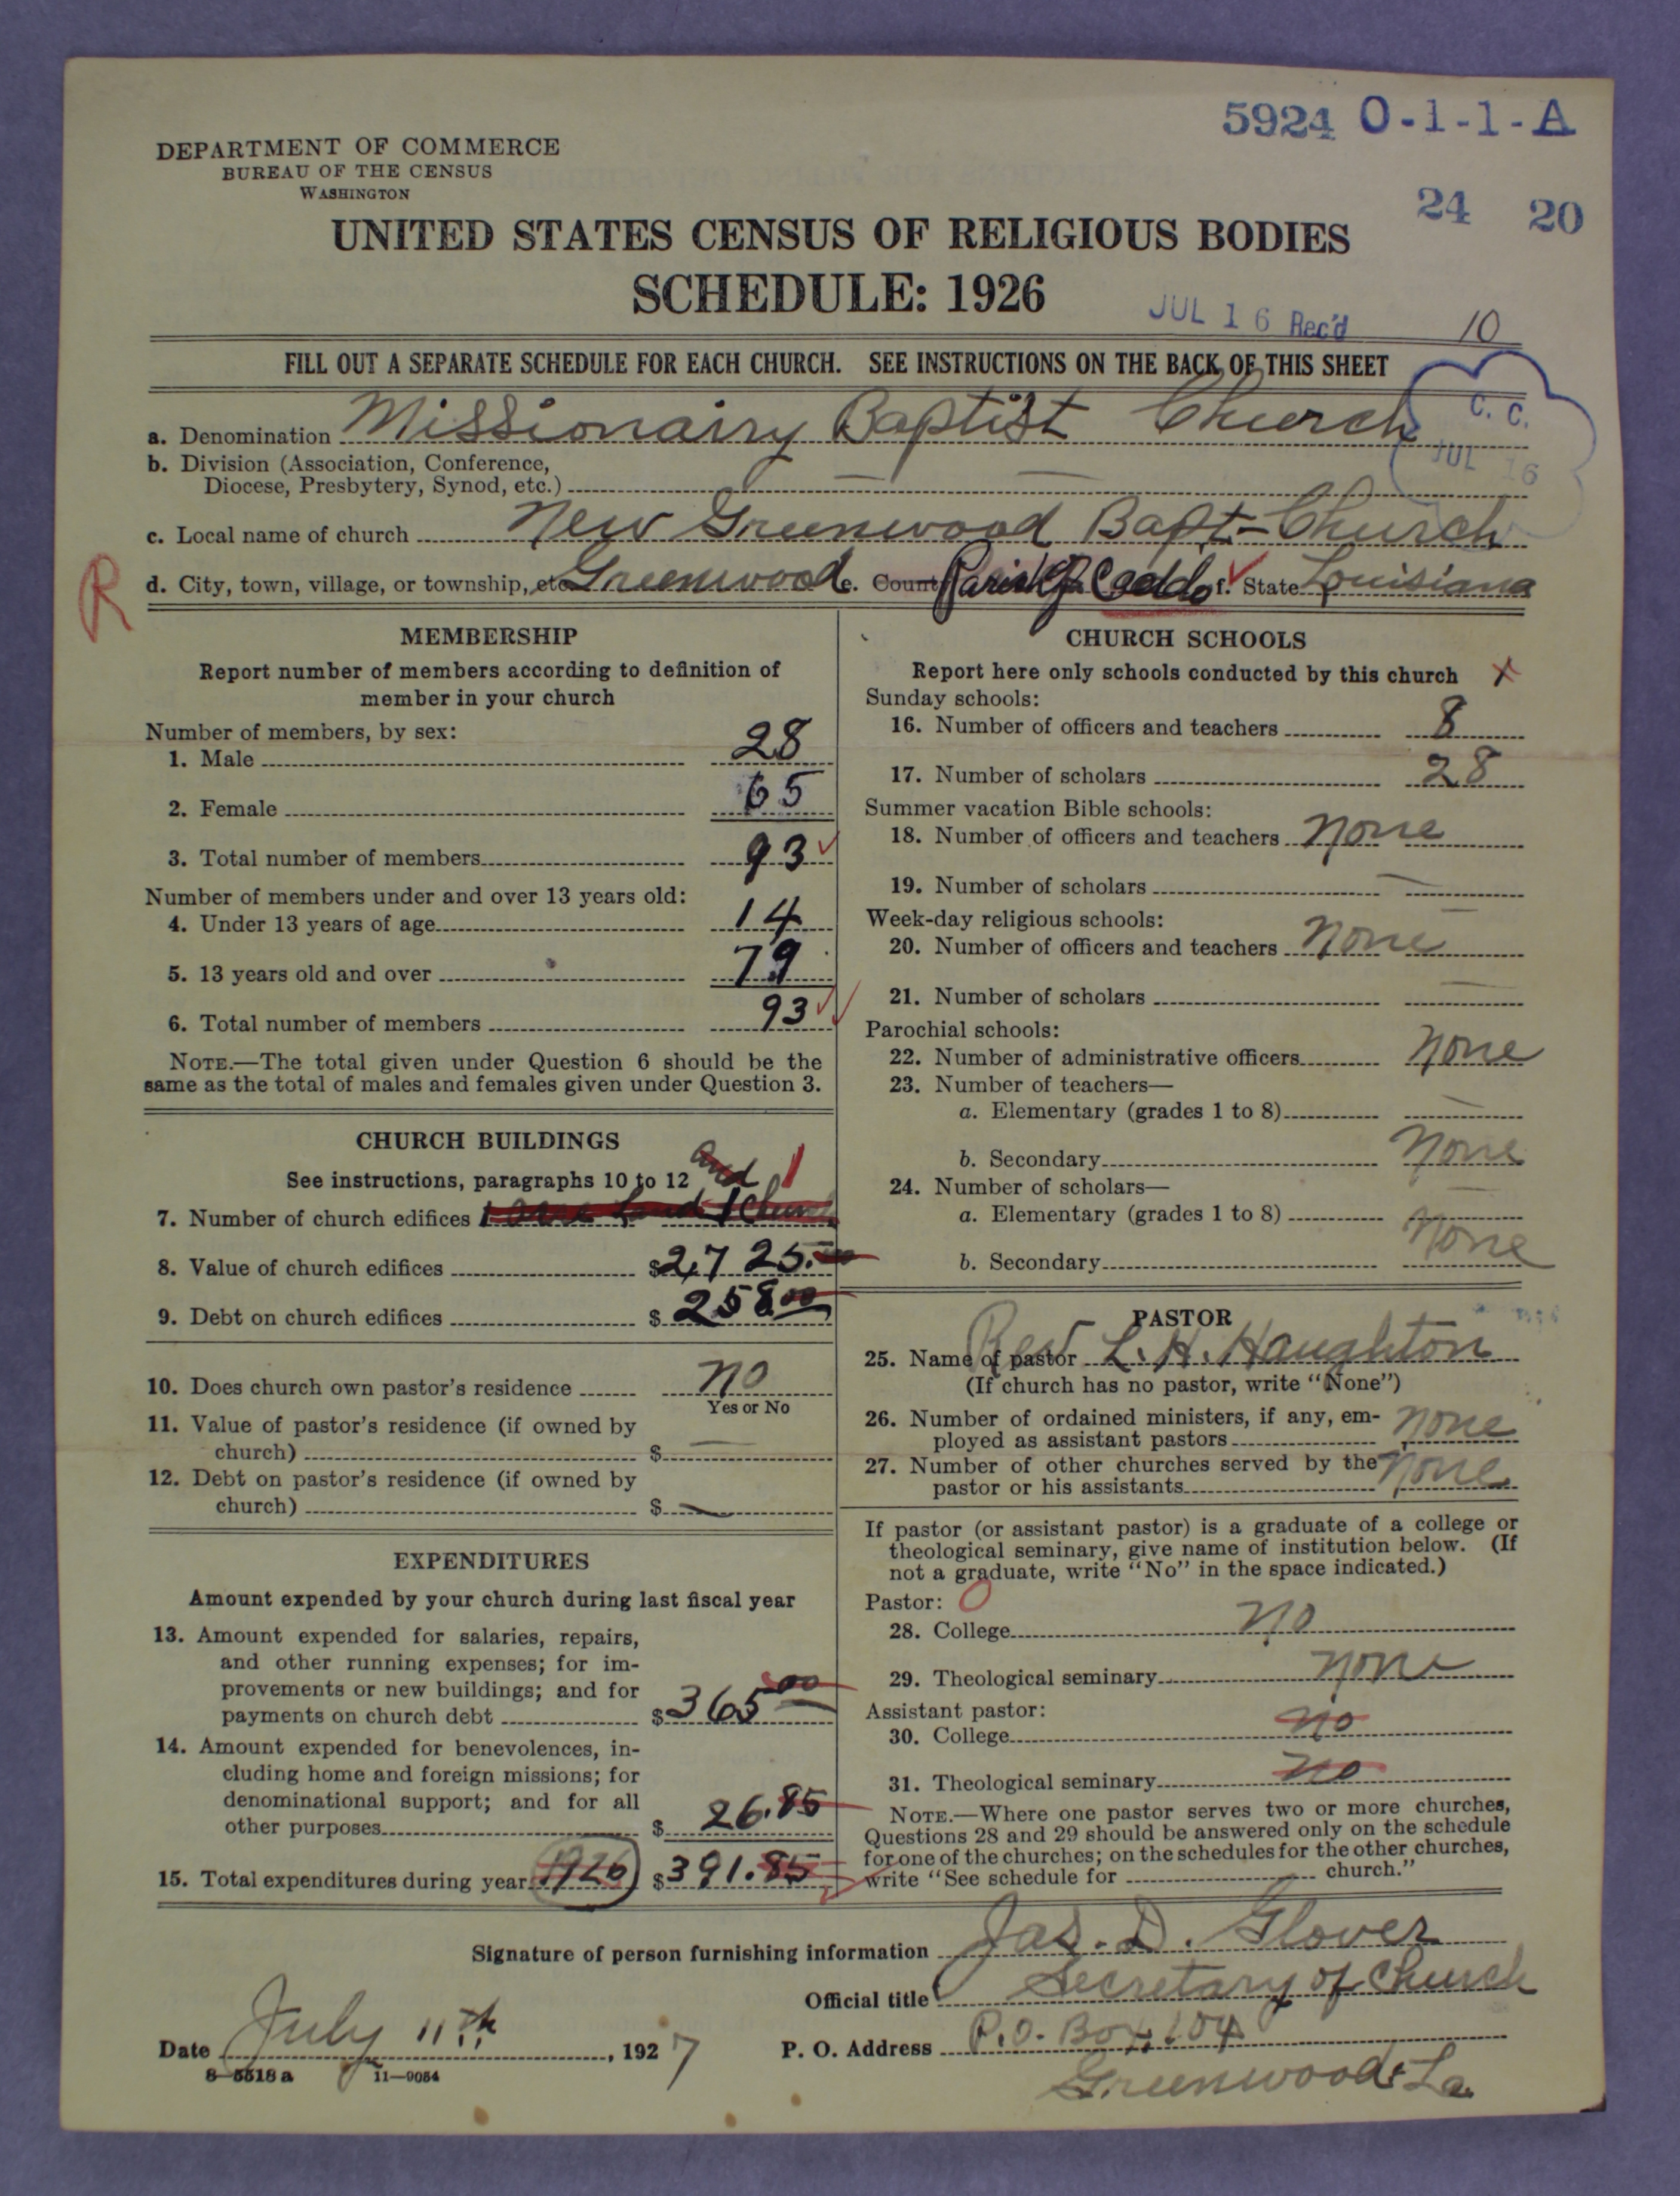 5924 O-1-1-A
DEPARTMENT OF COMMERCE
BUREAU OF THE CENSUS
WASHINGTON
24 20
UNITED STATES CENSUS OF RELIGIOUS BODIES
SCHEDULE: 1926
JUL 16 Rec'd 10
FILL OUT A SEPARATE SCHEDULE FOR EACH CHURCH. SEE INSTRUCTIONS ON THE BACK OF THIS SHEET
C. C.
JUL 16
a. Denomination Missionairy Baptist Church
b. Division (Association, Conference,
Diocese, Presbytery, Synod, etc.) —— ——
c. Local name of church New Greenwood Bapt- Church
R d. City, town, village, or township, etc Greenwood e. County Parish of Caddo f. State Louisiana
MEMBERSHIP
Report number of members according to definition of
member in your church
Number of members, by sex:
1. Male 28
2. Female 65
3. Total number of members 93
Number of members under and over 13 years old:
4. Under 13 years of age 14
5. 13 years old and over 79
6. Total number of members 93
NOTE.—The total given under Question 6 should be the
same as the total of males and females given under Question 3.
CHURCH BUILDINGS
See instructions, paragraphs 10 to 12 and 1
7. Number of church edifices 1 acre Land 1 Church
8. Value of church edifices $2,725.00
9. Debt on church edifices $258.00
10. Does church own pastor's residence no
Yes or No
11. Value of pastor's residence (if owned by
church) $ —
12. Debt on pastor's residence (if owned by
church) $ —
EXPENDITURES
Amount expended by your church during last fiscal year
13. Amount expended for salaries, repairs,
and other running expenses; for im-
provements or new buildings; and for
payments on church debt $365 00
14. Amount expended for benevolences, in-
cluding home and foreign missions; for
denominational support; and for all
other purposes $ 26.85
15. Total expenditures during year 1926 $391.85
CHURCH SCHOOLS
Report here only schools conducted by this church x
Sunday schools:
16. Number of officers and teachers 8
17. Number of scholars 28
Summer vacation Bible schools:
18. Number of officers and teachers none
19. Number of scholars —
Week-day religious schools:
20. Number of officers and teachers none
21. Number of scholars —
Parochial schools:
22. Number of administrative officers none
23. Number of teachers—
a. Elementary (grades 1 to 8) —
b. Secondary none
24. Number of scholars— —
a. Elementary (grades 1 to 8)
b. Secondary none
PASTOR
25. Name of pastor Rev L. H. Haughton
(If church has no pastor, write "None")
26. Number of ordained ministers, if any, em-
ployed as assistant pastors none
27. Number of other churches served by the
pastor or his assistants none
If pastor (or assistant pastor) is a graduate of a college or
theological seminary, give name of institution below. (If
not a graduate, write "No" in the space indicated.)
Pastor: 0
28. College no
29. Theological seminary none
Assistant pastor:
30. College no
31. Theological seminary no
NOTE.—Where one pastor serves two or more churches,
Questions 28 and 29 should be answered only on the schedule
for one of the churches; on the schedules for the other churches,
write "See schedule for church."
Signature of person furnishing information Jas. D. Glover
Official title Secretary of Church
Date July 11th, 1927 P. O. Address P.O. Box, 104
Greenwood, La.
8—5518a 11—9054